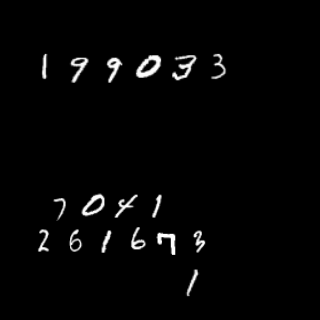 199033
7041
261673
1